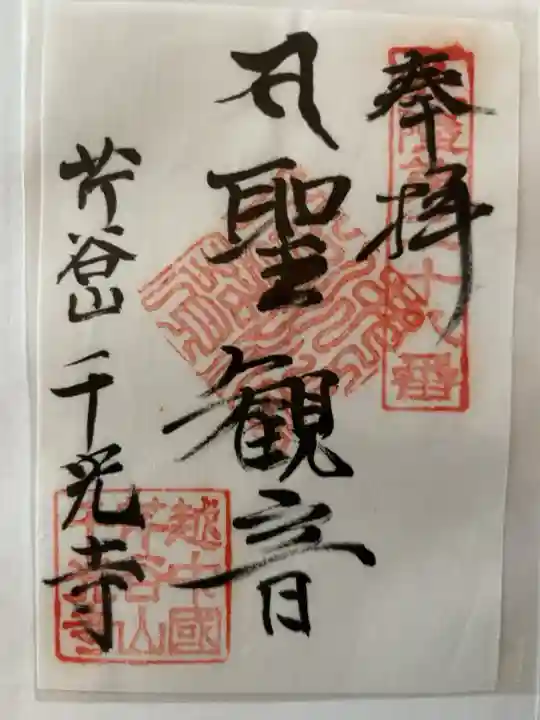 奉拝
聖観音
芹谷山 千光寺
越中國
芹谷山
千光寺